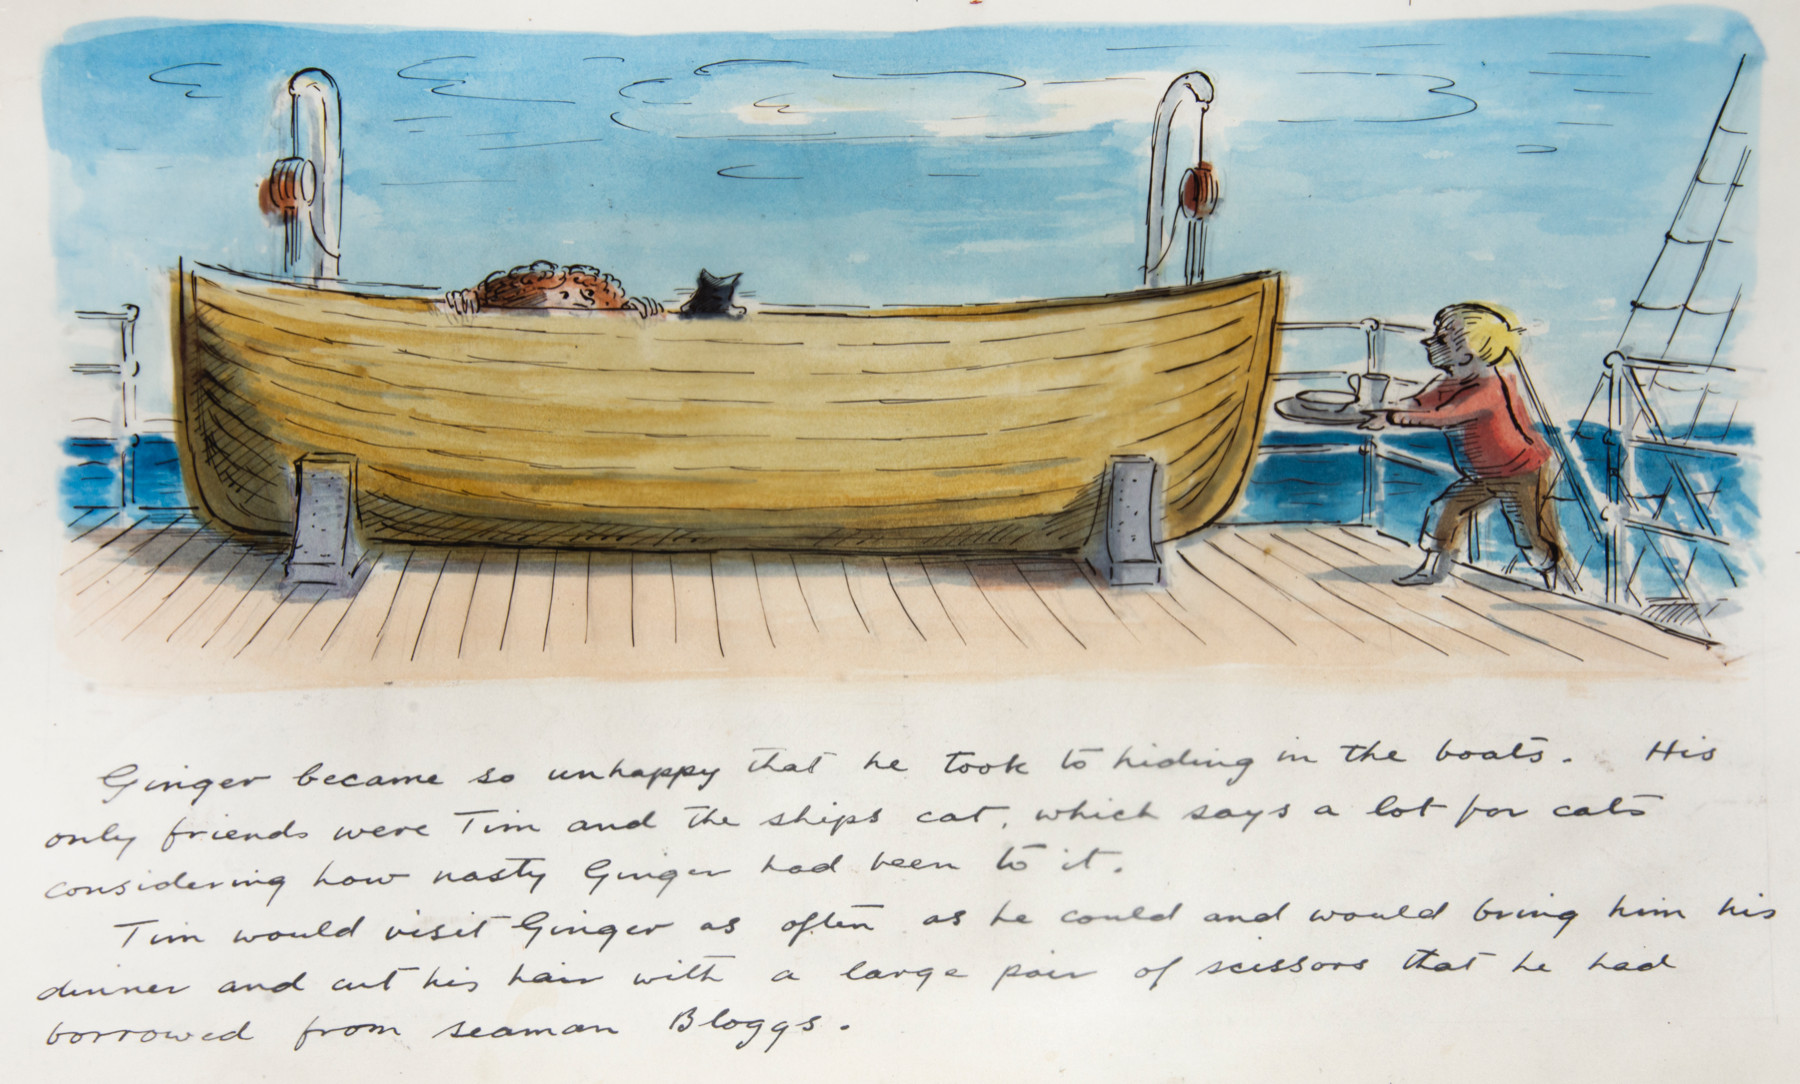 Ginger became so unhappy that he took to hiding in the boats. His
only friends were Tim and the ships cat, which says a lot for cats
considering how nasty Ginger had been to it.
Tim would visit Ginger as often as he could and would bring him his
dinner and cut his hair with a large pair of scissors that he had
borrowed from seaman Bloggs.